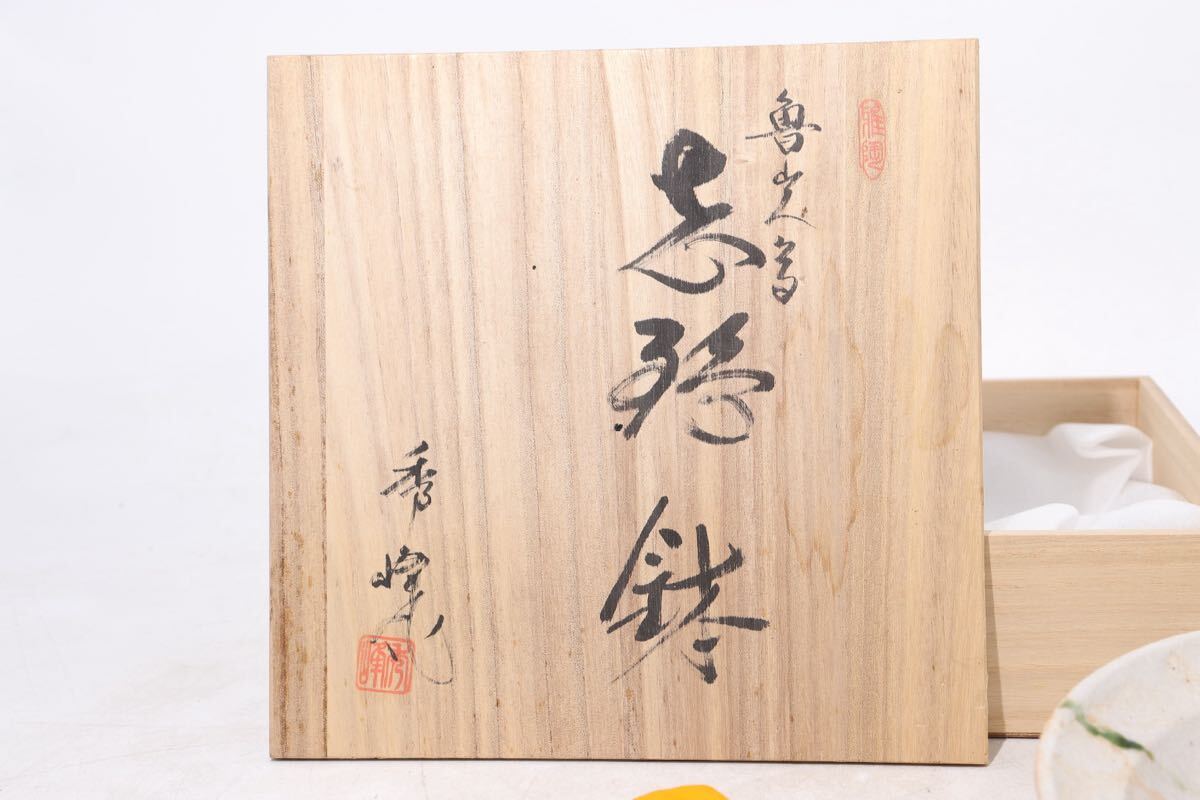 魯山人写
志野鉢
秀峰